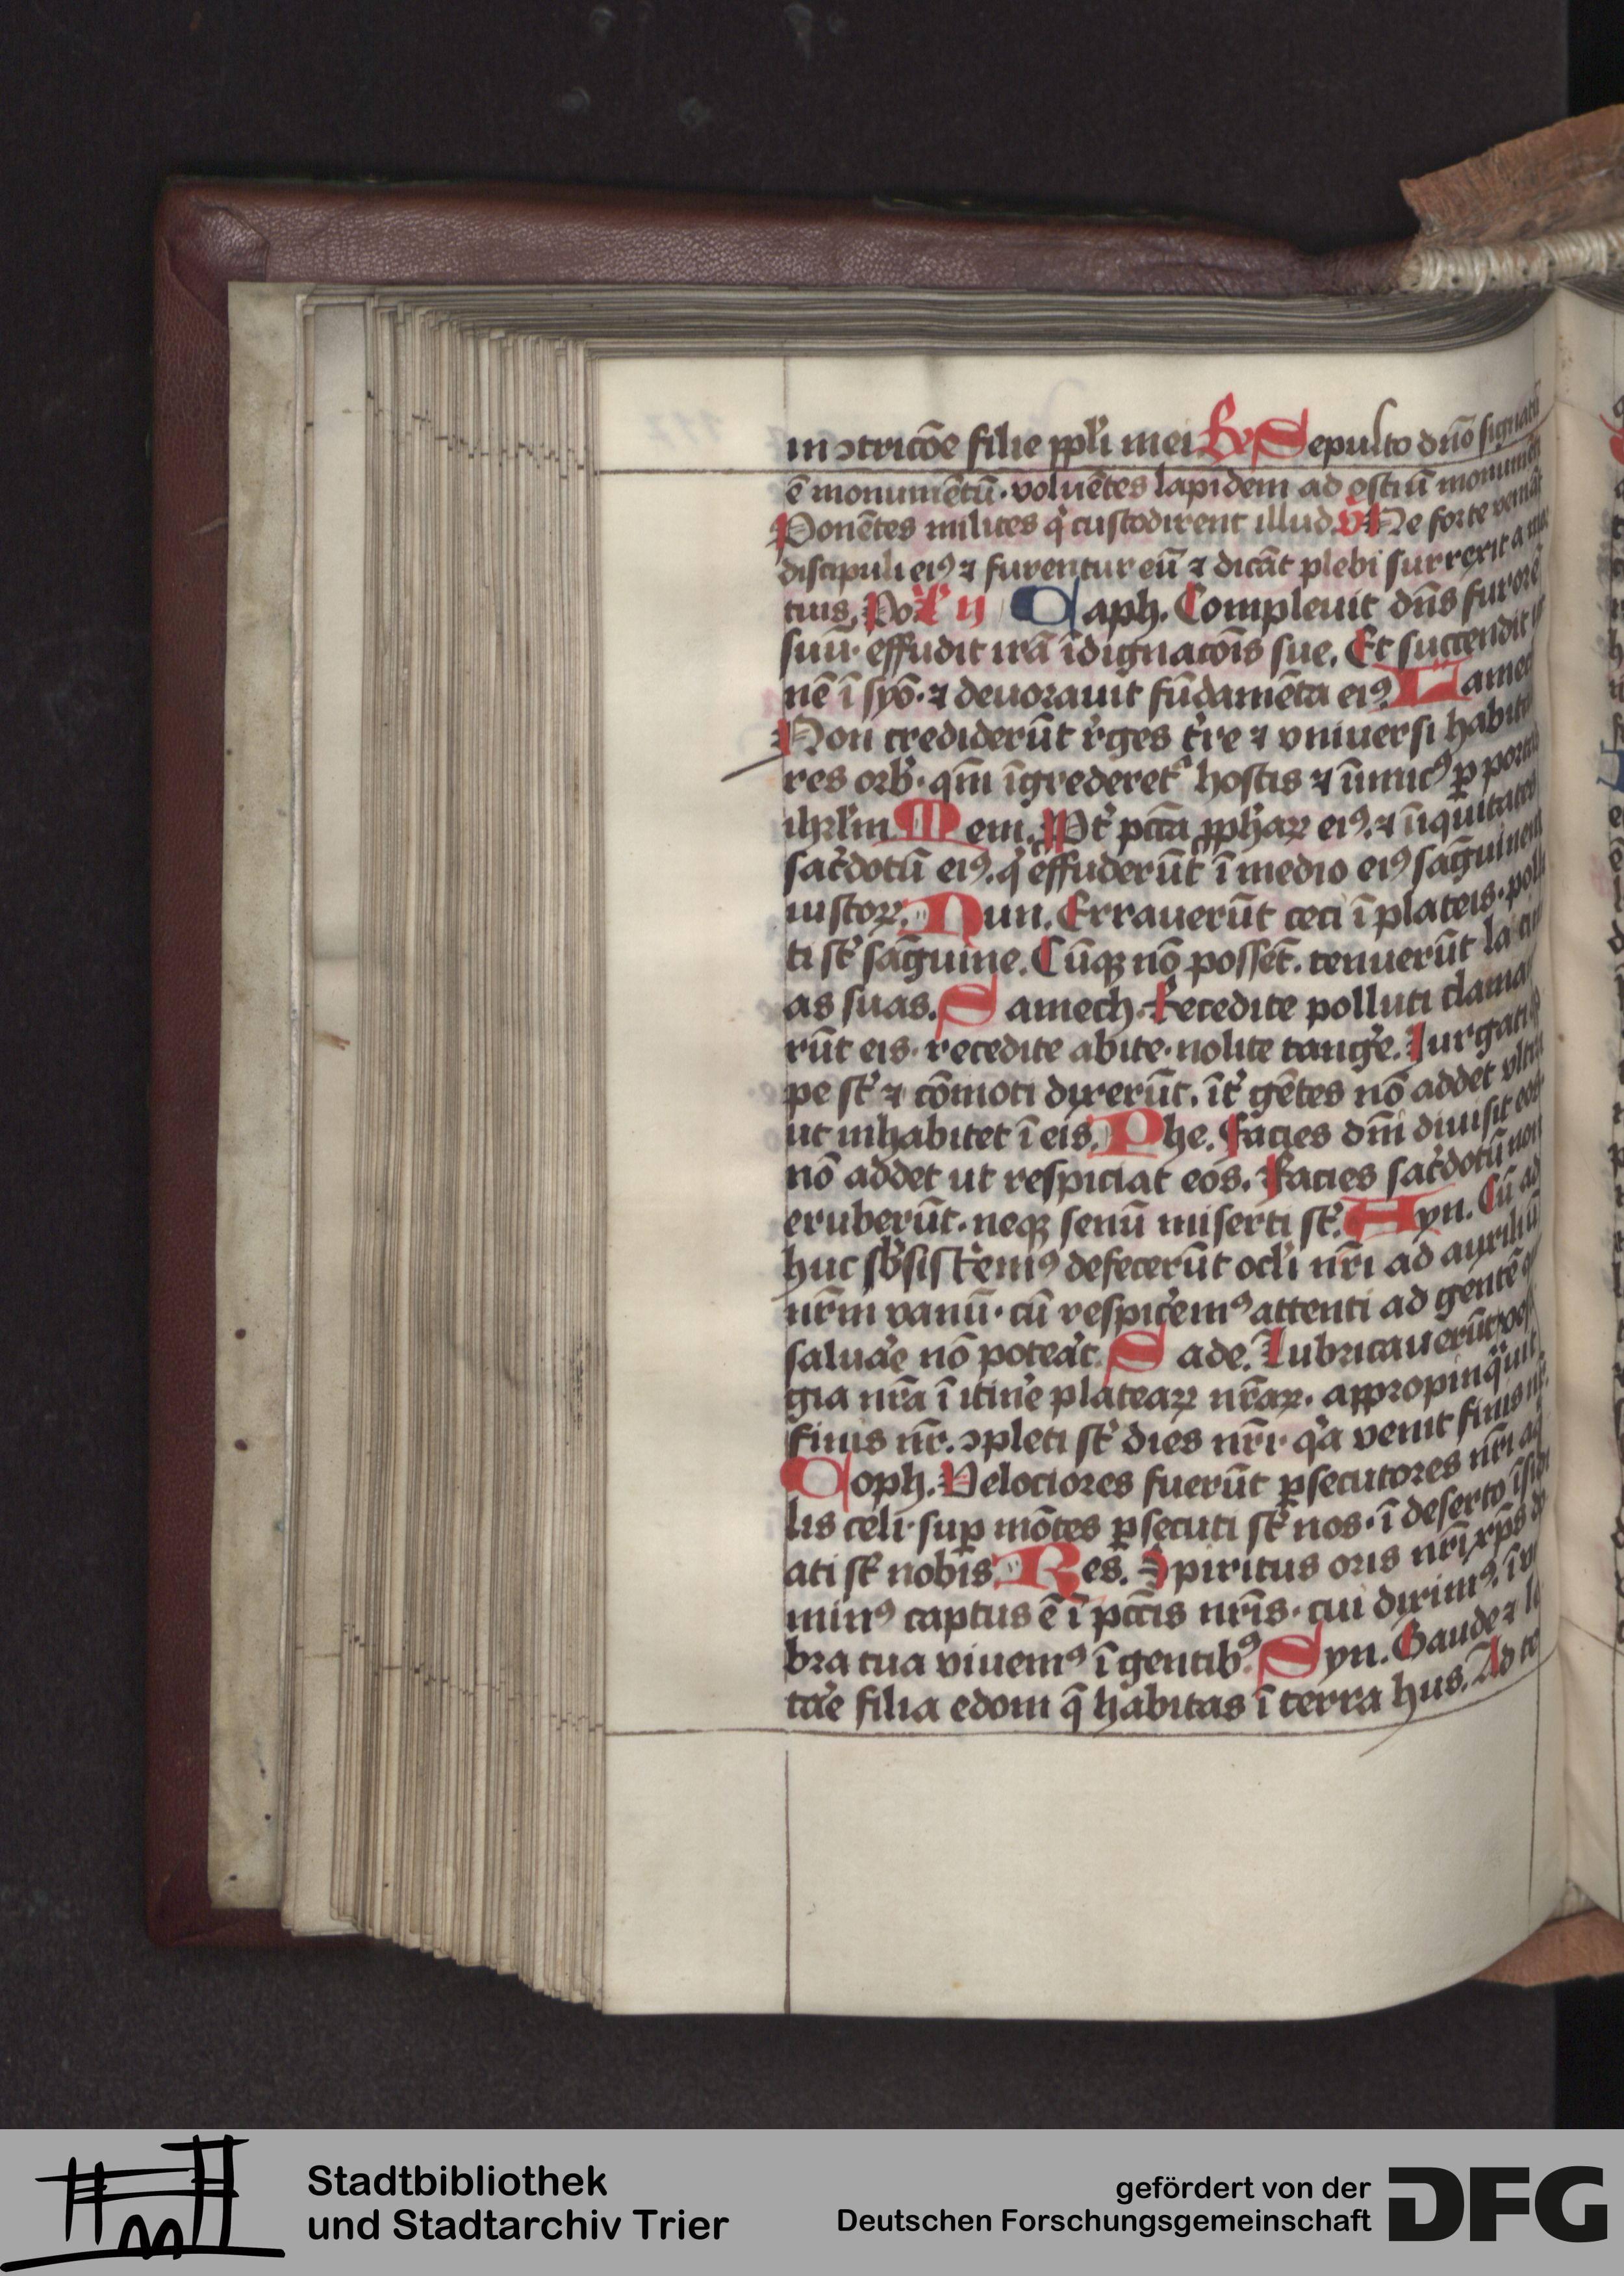 in ↄtricōe filie ppl'i mei R Sepulto dn̄o signatū
ē monumētū · voluētes lapidem ad ostiū monumēti
Ponētes milites q' custodirent illud. V Ne forte veniāt
discipuli eiꝰ ⁊ furentur eū ⁊ dicāt plebi surrexit a mor
tuis. Po L' ij Caph. Compleuit dn̄s furorē
suū · effudit irā īdignacōis sue. Et succendit ig
nē ī syō · ⁊ deuorauit fūdamēta eiꝰ. Lamech
Non crediderūt r'ges t're ⁊ vniuersi habitato
res orb' · qm̄ īgrederetᷣ hostis ⁊ īimicꝰ ꝑ portas
ihrl'm Mem. Pt' pctā ꝓphaꝝ eiꝰ. ⁊ īiquitates
sac'dotū eiꝰ. q' effuderūt ī medio eiꝰ sāguinem
iustoꝝ. Nun. Errauerūt ceci ī plateis · pollu
ti st' sāguine. Cūqꝫ nō possēt. tenuerūt lacini
as suas. Samech. Recedite polluti clama
rūt eis · recedite abite · nolite tang'e. Iurgati qͥp
pe st' ⁊ cōmoti dixerūt. īt' gētes nō addet vltra
ut inhabitet ī eis. Phe. Facies dn̄i diuisit eos
nō addet ut respiciat eos. Facies sac'dotū non
erubuerūt · neqꝫ senū miserti st'. Ayn. Cū ad
huc sb'sist'emꝰ defecerūt ocl'i nr̄i ad auxiliū
nr̄m vanū · cū respic'emꝰ attenti ad gentē q̄
salua'e nō potea't. Sade. Lubricauerūt vesti
gia nr̄a ī itin'e plateaꝝ nr̄aꝝ. appropinq̄uit
finis nr̄. ↄpleti st' dies nr̄i · q'a venit finis nr̄.
Coph. Velociores fuerūt ꝑsecutores nr̄i aq̄
lis celi · suꝑ mōtes ꝑsecuti st' nos · ī deserto īsidi
ati st' nobis. Res. Spiritus oris nr̄i xp̄s do
minꝰ captus ē ī pctīs nr̄is · cui diximꝰ. ī vm
bra tua viuemꝰ ī gentibꝰ. Syn. Gaude ⁊ le
ta'e filia edom q̄ habitas ī terra hus. Ad te
Stadtbibliothek
und Stadtarchiv Trier
gefördert von der
Deutschen Forschungsgemeinschaft
DFG